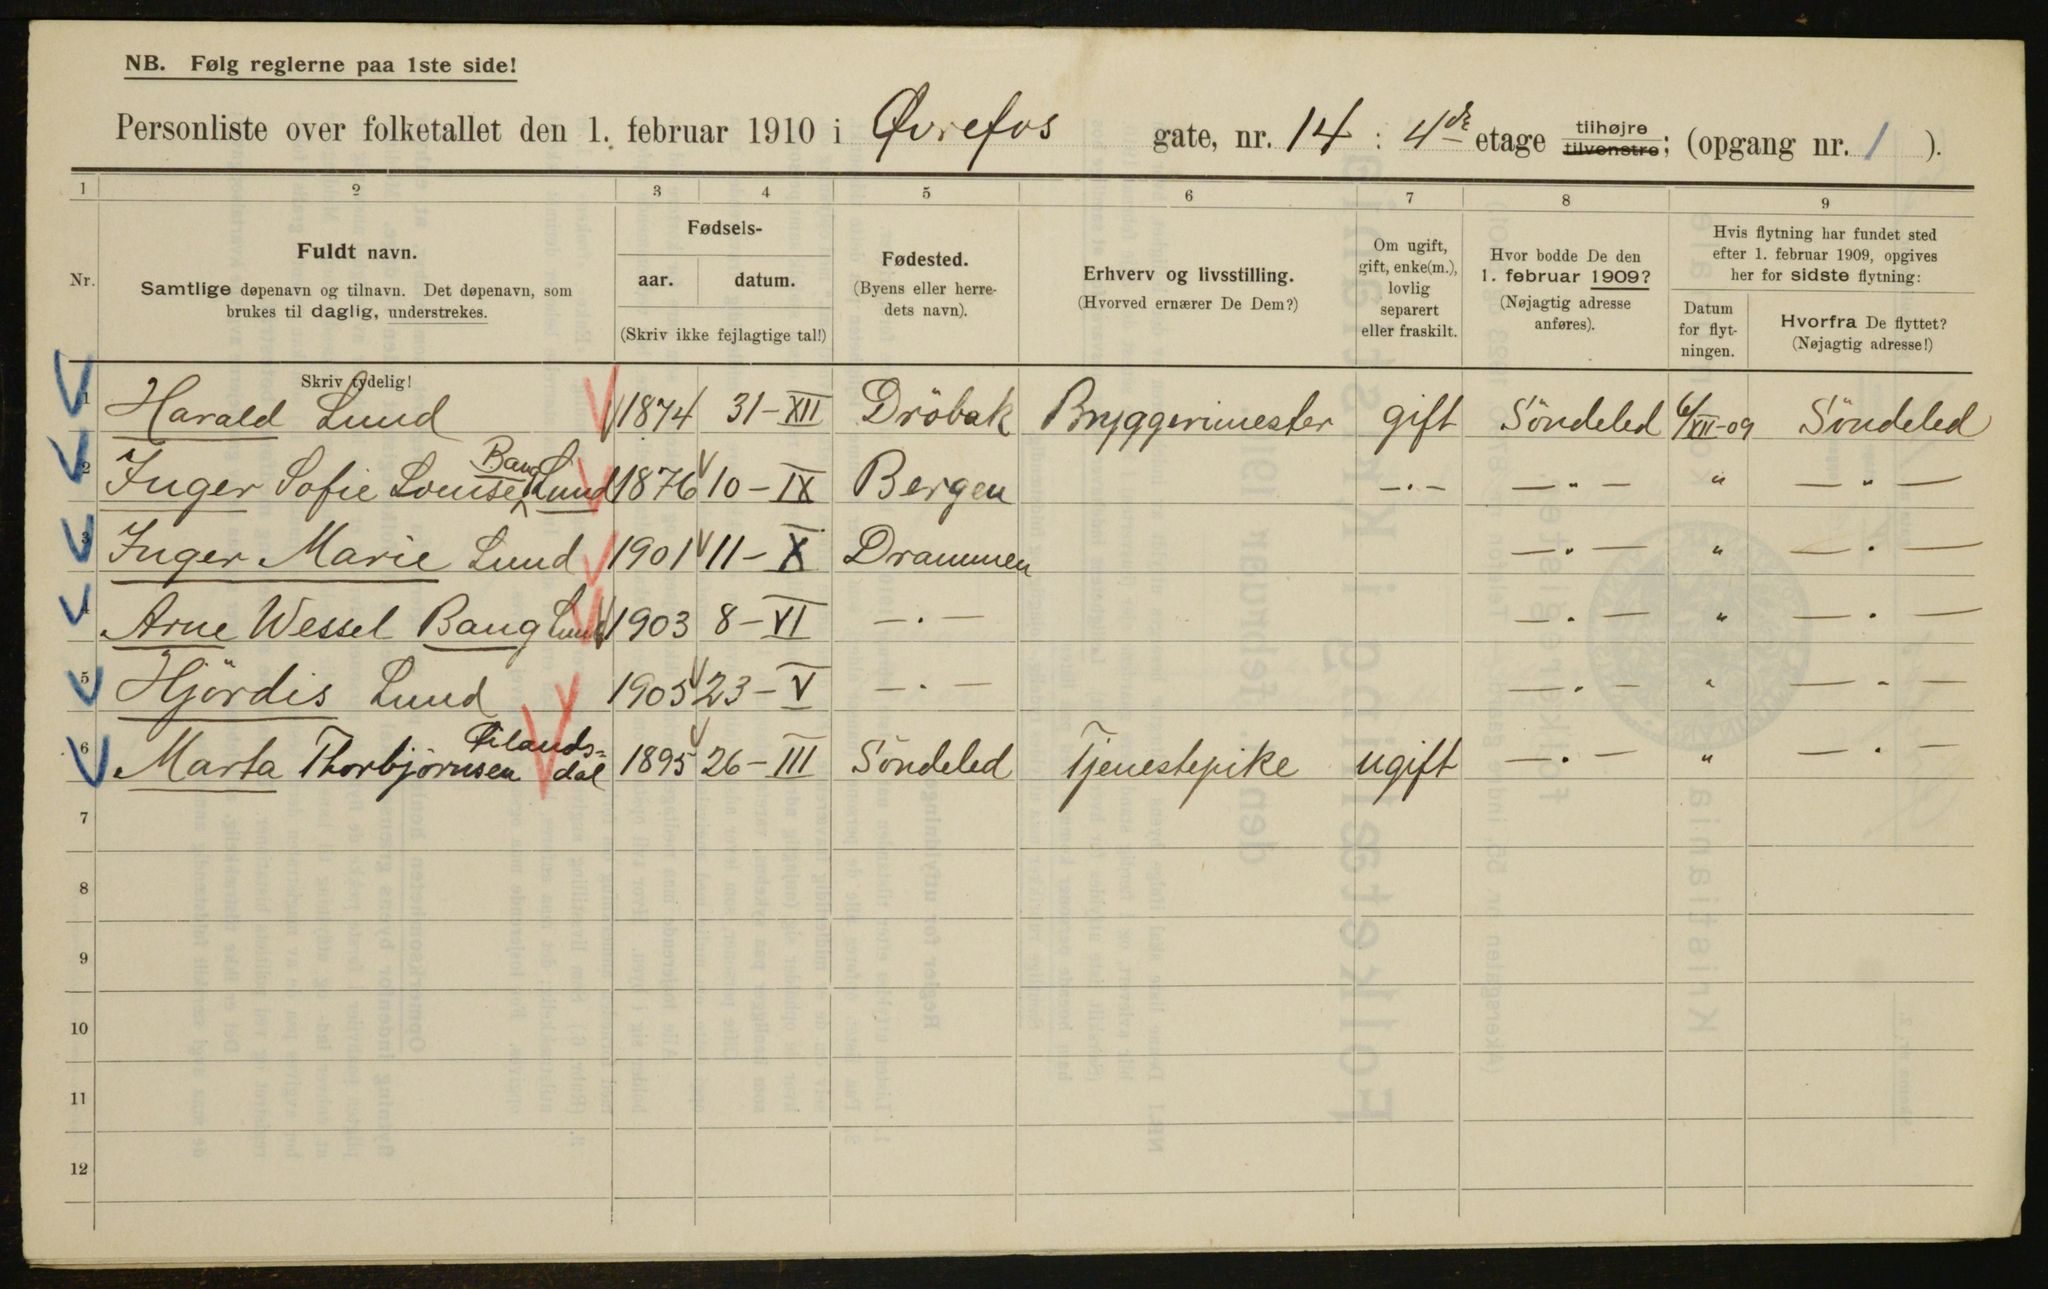 NB. Følg reglerne paa 1ste side!
Personliste over folketallet den 1. februar 1910 i Øvrefos gate, nr. 14 : 4de etage tilhøjre tilvenstre; (opgang nr. 1 ).
1 2 3 4 5 6 7 8 9
Nr.
Fuldt navn.
Samtlige døpenavn og tilnavn. Det døpenavn, som
brukes til daglig, understrekes.
Fødsels-
aar. datum.
(Skriv ikke fejlagtige tal!)
Fødested.
(Byens eller herre-
dets navn).
Erhverv og livsstilling.
(Hvorved ernærer De Dem?)
Om ugift,
gift, enke(m.),
lovlig
separert
eller fraskilt.
Hvor bodde De den
1. februar 1909?
(Nøjagtig adresse
anføres).
Hvis flytning har fundet sted
efter 1. februar 1909, opgives
her for sidste flytning:
Datum
for flyt-
ningen.
Hvorfra De flyttet?
(Nøjagtig adresse!)
Skriv tydelig!
1 Harald Lund 1874 31-XII Dröbak Bryggerimester gift Söndeled 6/XII-09 Söndeled
2 Inger Sofie Louise Bang Lund 1876 10-IX Bergen —·— —„— „ —„—
3 Inger Marie Lund 1901 11-X Drammen —.— „ —.—
4 Arne Wessel Bang Lund 1903 8-VI —.— —.— „ —.—
5 Hjördis Lund 1905 23-V —.— —.— „ —.—
6 Marta Thorbjørnsen 1895 26-III Söndeled Tjenestepike ugift —.— „ —.—
7
8
9
10
11
12